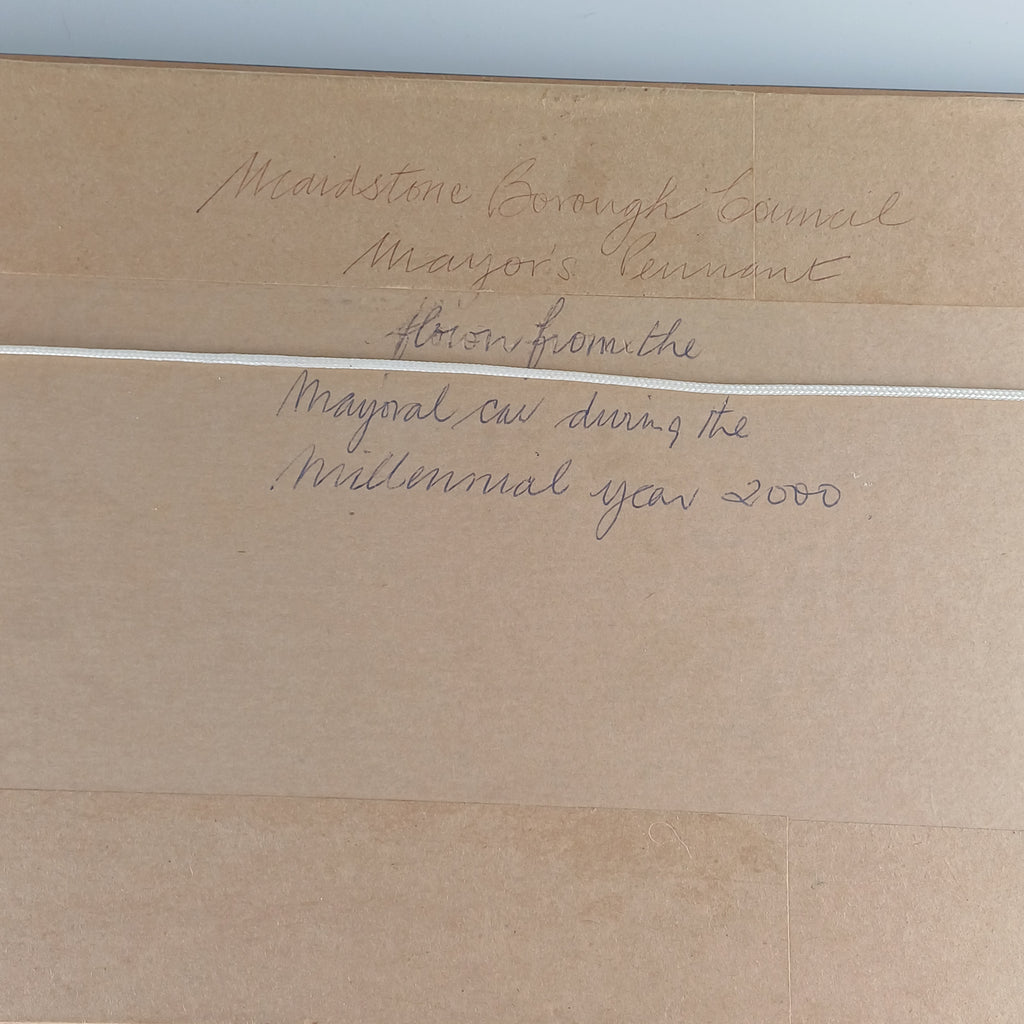 Maidstone Borough Council
Mayor's Pennant
flown from the
Mayoral car during the
Millennial year 2000